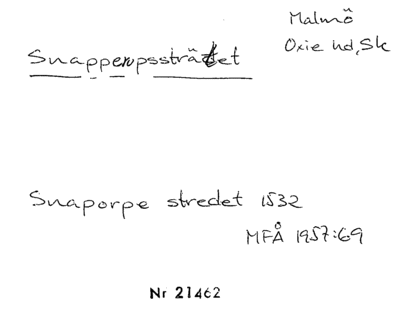 Malmö
Oxie hd, Sk
Snapperupssträtet
Snaporpe stredet 1532
MFÅ 1957:69
Nr 21462